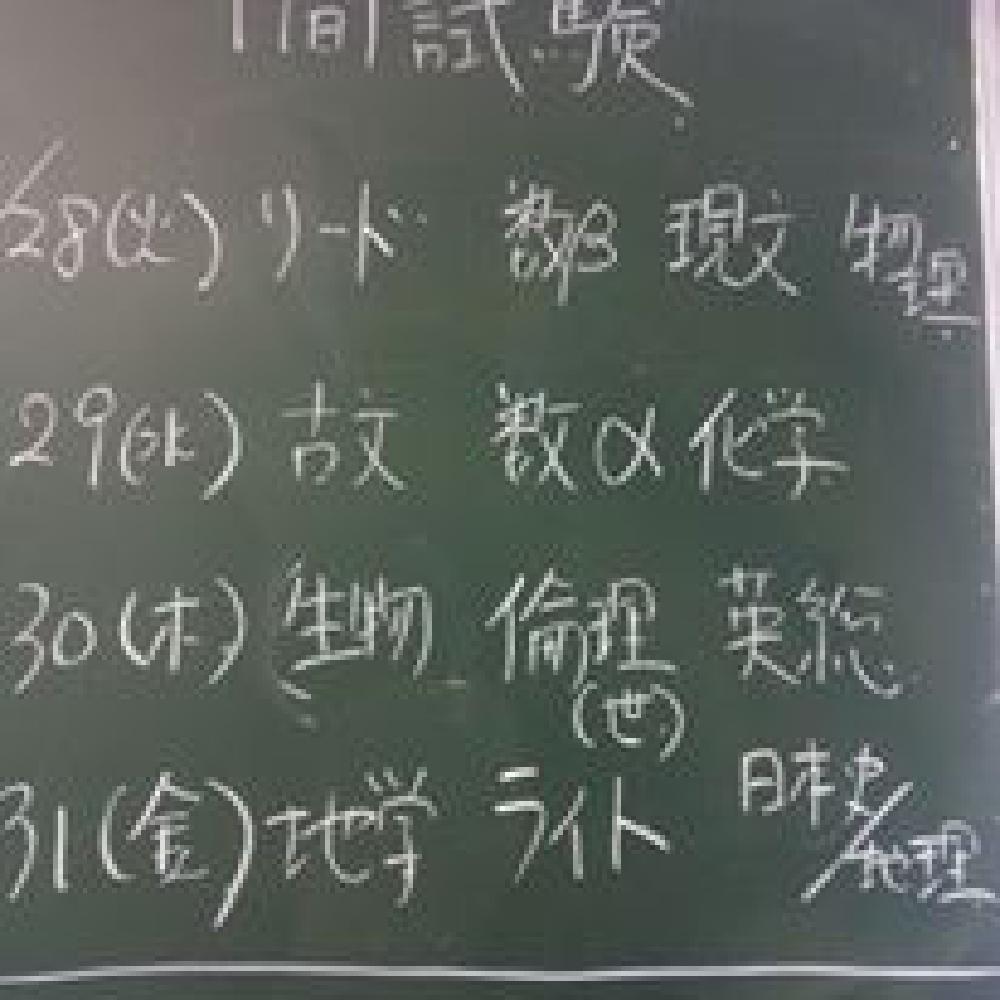 間試験
/28(火) リード 数β 現文 物理
29(水) 古文 数α 化学
30(木) 生物 倫理 英総
(世)
31(金) 地学 ライト 日本史/地理